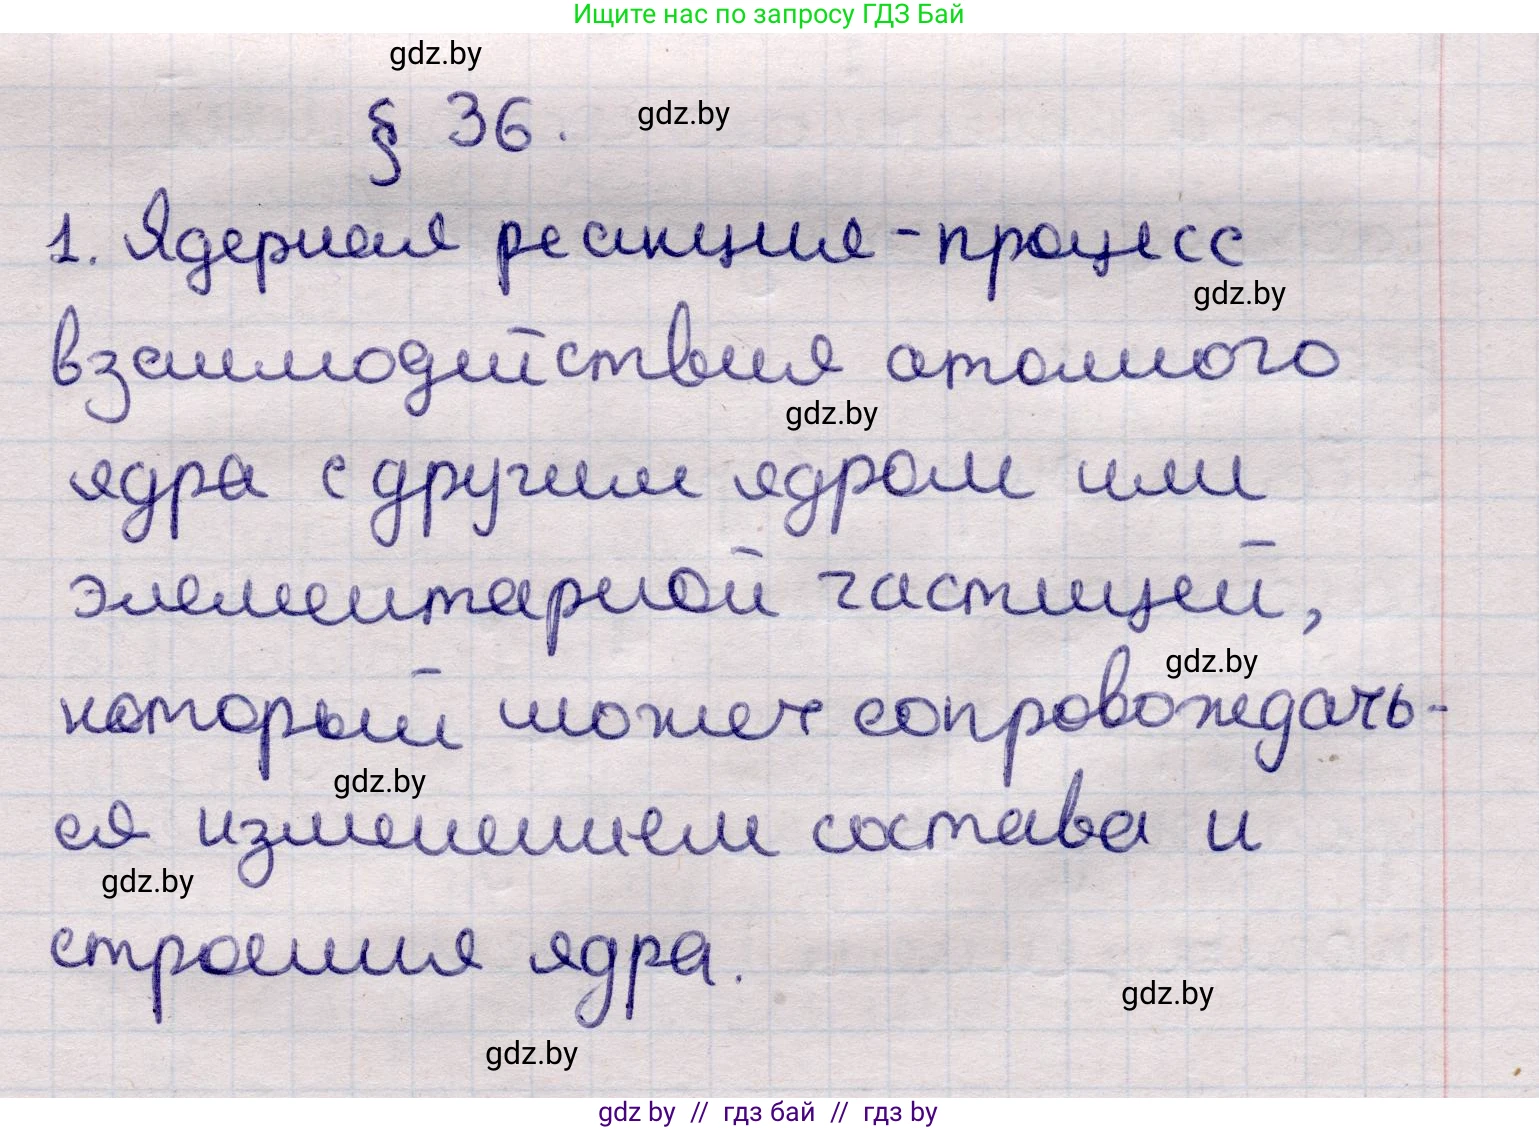 Ищите нас по запросу ГДЗ Бай
gdz.by
§ 36. gdz.by
1. Ядерная реакция - процесс
gdz.by
взаимодействия атомного
gdz.by
ядра с другим ядром или
элементарной частицей,
gdz.by
который может сопровождать-
gdz.by
ся изменением состава и
gdz.by
строения ядра.
gdz.by
gdz.by
gdz by // гдз бай // гдз by